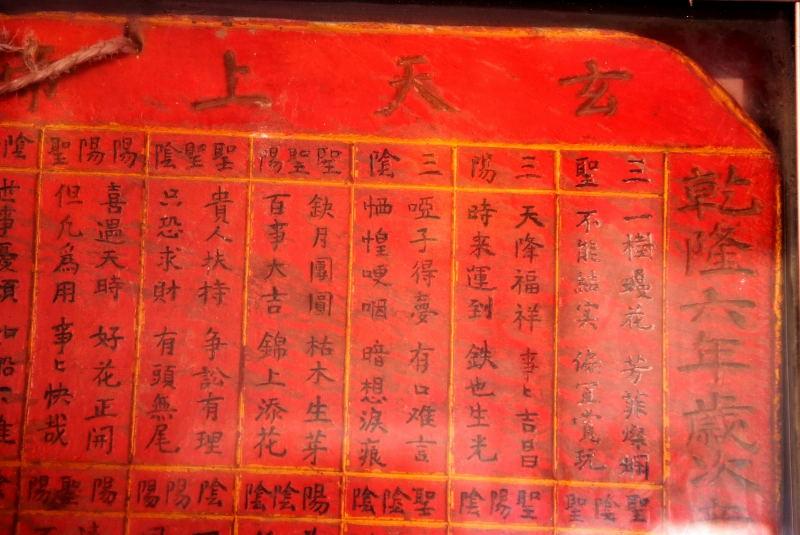 玄天上帝
乾隆六年歲次
三聖
一樹熳花 芳菲燦爛
不能結実 賞玩
三陽
天降福祥 事匕吉昌
時来運到 鉄也生光
三陰
啞子得夢 有口难言
恓惶哽咽 暗想淚痕
聖聖陽
缺月團圓 枯木生芽
百事大吉 錦上添花
聖聖陰
貴人扶持 争訟有理
只恐求財 有頭無尾
陽陽聖
喜遇天時 好花正開
但凢為用 事匕快哉
陰
世事憂煩 如船
聖陰聖
聖陽陰
聖陰陰
陽陰陰
陰陽陽
陽聖陽
陰